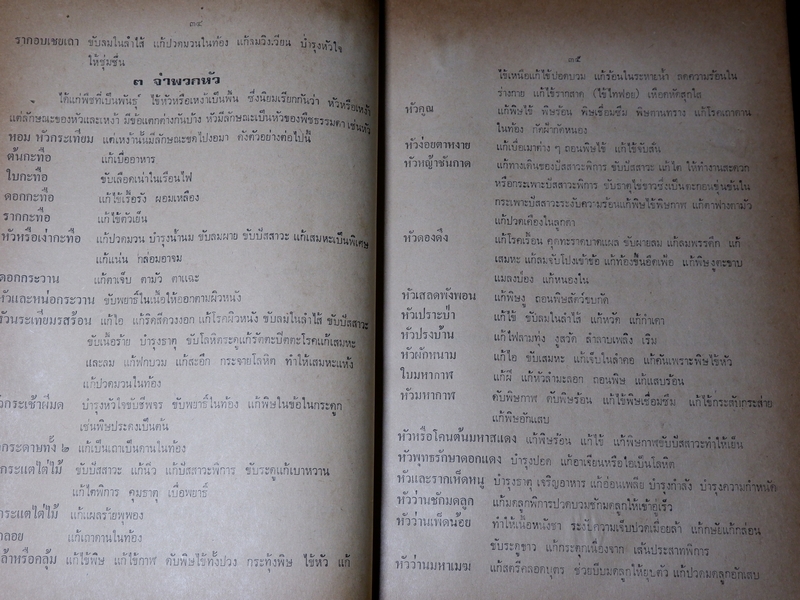 ๓๔
รากอบเชยเถา ขับลมในลำไส้ แก้ปวดมวนในท้อง แก้ลมวิงเวียน บำรุงหัวใจ
ให้ชุ่มชื่น
๓ จำพวกหัว
ได้แก่พืชที่เป็นพันธุ์ ใช้หัวหรือเหง้าเป็นพื้น ซึ่งนิยมเรียกกันว่า หัวหรือเหง้า
แต่ลักษณะของหัวและเหง้า มีข้อแตกต่างกันบ้าง หัวมีลักษณะเป็นหัวของพืชธรรมดา เช่นหัว
หอม หัวกระเทียม แต่เหง้านั้นมีลักษณะขดไปงอมา ดังตัวอย่างต่อไปนี้
ต้นกะทือ แก้เบื่ออาหาร
ใบกะทือ ขับเลือดเน่าในเรือนไฟ
ดอกกะทือ แก้ไข้เรื้อรัง ผอมเหลือง
รากกะทือ แก้ไข้ตัวเย็น
หัวหรือเหง่ากะทือ แก้ปวดมวน บำรุงน้ำนม ขับลมผาย ขับปัสสาวะ แก้เสมหะเป็นพิศษ
แก้แน่น กล่อมอาจม
ดอกกระวาน แก้ตาเจ็บ ตามัว ตาแฉะ
หัวและหน่อกระวาน ขับพยาธิ์ในเนื้อให้ออกตามผิวหนัง
หัวกระเทียมรสร้อน แก้ไอ แก้ริดสีดวงงอก แก้โรคผิวหนัง ขับลมในลำไส้ ขับปัสสาวะ
ขับเนื้อร้าย บำรุงธาตุ ขับโลหิตระดูแก้รัตตะปิตตะโรคแก้เสมหะ
และลม แก้ฟกบวม แก้สะอึก กระจายโลหิต ทำให้เสมหะแห้ง
แก้ปวดมวนในท้อง
หัวกระเช้าผีมด บำรุงหัวใจขับชีพจร ขับพยาธิ์ในท้อง แก้พิษในข้อในกระดูก
เช่นพิษประดงเป็นต้น
กระดาษทั้ง ๒ แก้เป็นเถาเป็นดานในท้อง
กระแตไต่ไม้ ขับปัสสาวะ แก้นิ่ว แก้ปัสสาวะพิการ ขับระดูแก้เบาหวาน
แก้ไตพิการ คุมธาตุ เบื่อพยาธิ์
กระแตไต่ไม้ แก้แผลร้ายพุพอง
กลอย แก้เถาดานในท้อง
คล้าหรือคลุ้ม แก้ไข้พิษ แก้ไข้กาฬ ดับพิษไข้ทั้งปวง กระทุ้งพิษ ไข้หัว แก้
๓๕
ไข้เหนือแก้ไข้ปอดบวม แก้ร้อนในระหายน้ำ ลดความร้อนใน
ร่างกาย แก้ไข้รากสาด (ไข้ไทฟอย) เหือดหัดสุกใส
หัวคูณ แก้พิษไข้ พิษร้อน พิษเซื่อมซึม พิษตานทราง แก้โรคเถาดาน
ในท้อง กัดฝ้ากัดหนอง
หัวง่อยตาหงาย แก้เบื่อเมาต่าง ๆ ถอนพิษไข้ แก้ไข้จับสั่น
หัวหญ้าชันกาด แก้ทางเดินของปัสสาวะพิการ ขับปัสสาวะ แก้ไต ให้ทำงานสะดวก
หรือกระเพาะปัสสาวะพิการ ขับธาตุไข่ขาวซึ่งเป็นตะกอนขุ่นข้นใน
กระเพาะปัสสาวะระงับความร้อนแก้พิษไข้พิษกาฬ แก้ตาฟางตามัว
แก้ปวดเคืองในลูกตา
หัวดองดึง แก้โรคเรื้อน คุดทะราดบาดแผล ขับผายลม แก้ลมพรรดึก แก้
เสมหะ แก้ลมจับโปงเข้าข้อ แก้ท้องขึ้นอืดเฟ้อ แก้พิษงูตะขาบ
แมลงป่อง แก้หนองใน
หัวเสลดพังพอน แก้พิษงู ถอนพิษสัตว์ขบกัด
หัวเปราะป่า แก้ไข้ ขับลมในลำไส้ แก้หวัด แก้กำเดา
หัวปรงบ้าน แก้ไฟลามทุ่ง งูสวัด ลำลาบเพลิง เริม
หัวผักหนาม แก้ไอ ขับเสมหะ แก้เจ็บในลำคอ แก้คันเพราะพิษไข้หัว
ใบมหากาฬ แก้ฝี แก้หัวลำมะลอก ถอนพิษ แก้แสบร้อน
หัวมหากาฬ ดับพิษกาฬ ดับพิษร้อน แก้ไข้พิษเซื่อมซึม แก้ไข้กระสับกระส่าย
แก้พิษอักเสบ
หัวหรือโคนต้นมหาสแดง แก้พิษร้อน แก้ไข้ แก้พิษกาฬขับปัสสาวะทำให้เย็น
หัวพุทธรักษาดอกแดง บำรุงปอด แก้อาเจียนหรือไอเป็นโลหิต
หัวและรากเห็ดหนู บำรุงธาตุ เจริญอาหาร แก้อ่อนเพลีย บำรุงกำลัง บำรุงความกำหนัด
หัวว่านชักมดลูก แก้มดลูกพิการปวดบวมชักมดลูกให้เข้าอู่เร็ว
หัวว่านเพ็ดน้อย ทำให้เนื้อหนังชา ระงับความเจ็บปวดเมื่อยล้า แก้กษัยแก้กล่อน
ขับระดูขาว แก้กระตุกเนื่องจาก เส้นประสาทพิการ
หัวว่านมหาเมฆ แก้สตรีคลอดบุตร ช่วยบีบมดลูกให้ยุบตัว แก้ปวดมดลูกอักเสบ